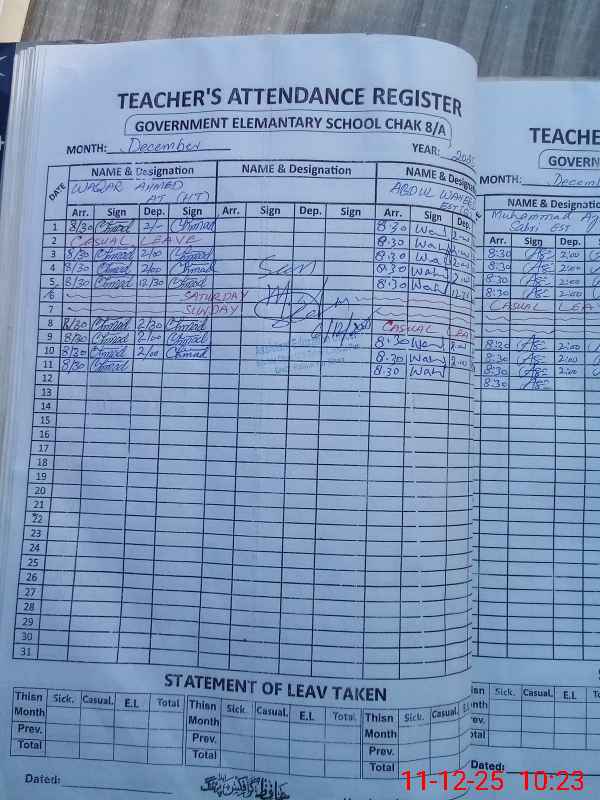 TEACHER'S ATTENDANCE REGISTER
GOVERNMENT ELEMANTARY SCHOOL CHAK 8/A
MONTH: December YEAR:
DATE NAME & Designation NAME & Designation NAME & Designation
WAQAR AHMED ABDUL
AT (HT) EST
Arr. Sign Dep. Sign Arr. Sign Dep. Sign Arr. Sign Dep.
1 8/30 Ahmad 2/- Ahmad 8:30 2:00
2 CASUAL LEAVE 8:30 2:00
3 8/30 Ahmad 2/00 Ahmad 8:30 2:00
4 8/30 Ahmad 2/00 Ahmad 8:30 2:00
5 8/30 Ahmad 12/30 Ahmad 8:30
6 SATURDAY
7 SUNDAY
8 8/30 Ahmad 2/30 Ahmad CASUAL LEA
9 8/30 Ahmad 2/00 Ahmad 8:30 2:00
10 8/30 Ahmad 2/00 Ahmad 8:30 2:00
11 8/30 Ahmad 8:30
12
13
14
15
16
17
18
19
20
21
22
23
24
25
26
27
28
29
30
31
Seen
STATEMENT OF LEAV TAKEN
Thisn Month Sick. Casual. E.L Total
Prev.
Total
Thisn Month Sick. Casual. E.L Total
Prev.
Total
Thisn Month Sick. Casual.
Prev.
Total
Dated:
TEACHE
GOVERN
MONTH: Decem
NAME & Designatio
Muhammad
Sabri EST
Arr. Sign Dep. S
8:30 2:00
8:30 2:00
8:30 2:00
8:30 2:00
CASUAL LEA
8:30 2:00
8:30 2:00
8:30 2:00
8:30
Thisn Month Sick. Casual.
Prev.
Total
Dated:
11-12-25 10:23